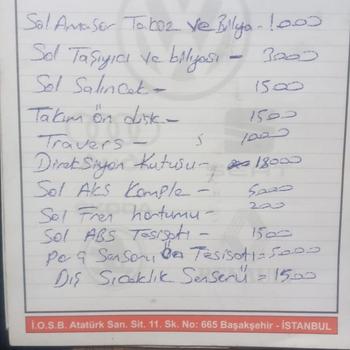 Sol Amasör Takoz ve Bilya - 1000
Sol Taşıyıcı ve bilyası - 3000
Sol Salıncak - 1500
Takım Ön disk - 1500
Travers - 1000
Direksiyon Kutusu - 18000
Sol Aks Komple - 5000
Sol Fren hortumu - 200
Sol ABS Tesisatı - 1500
Park Sensörü Ön Tesisatı = 5000
Dış Sıcaklık Sensörü = 1500
İ.O.S.B. Atatürk San. Sit. 11. Sk. No: 665 Başakşehir - İSTANBUL